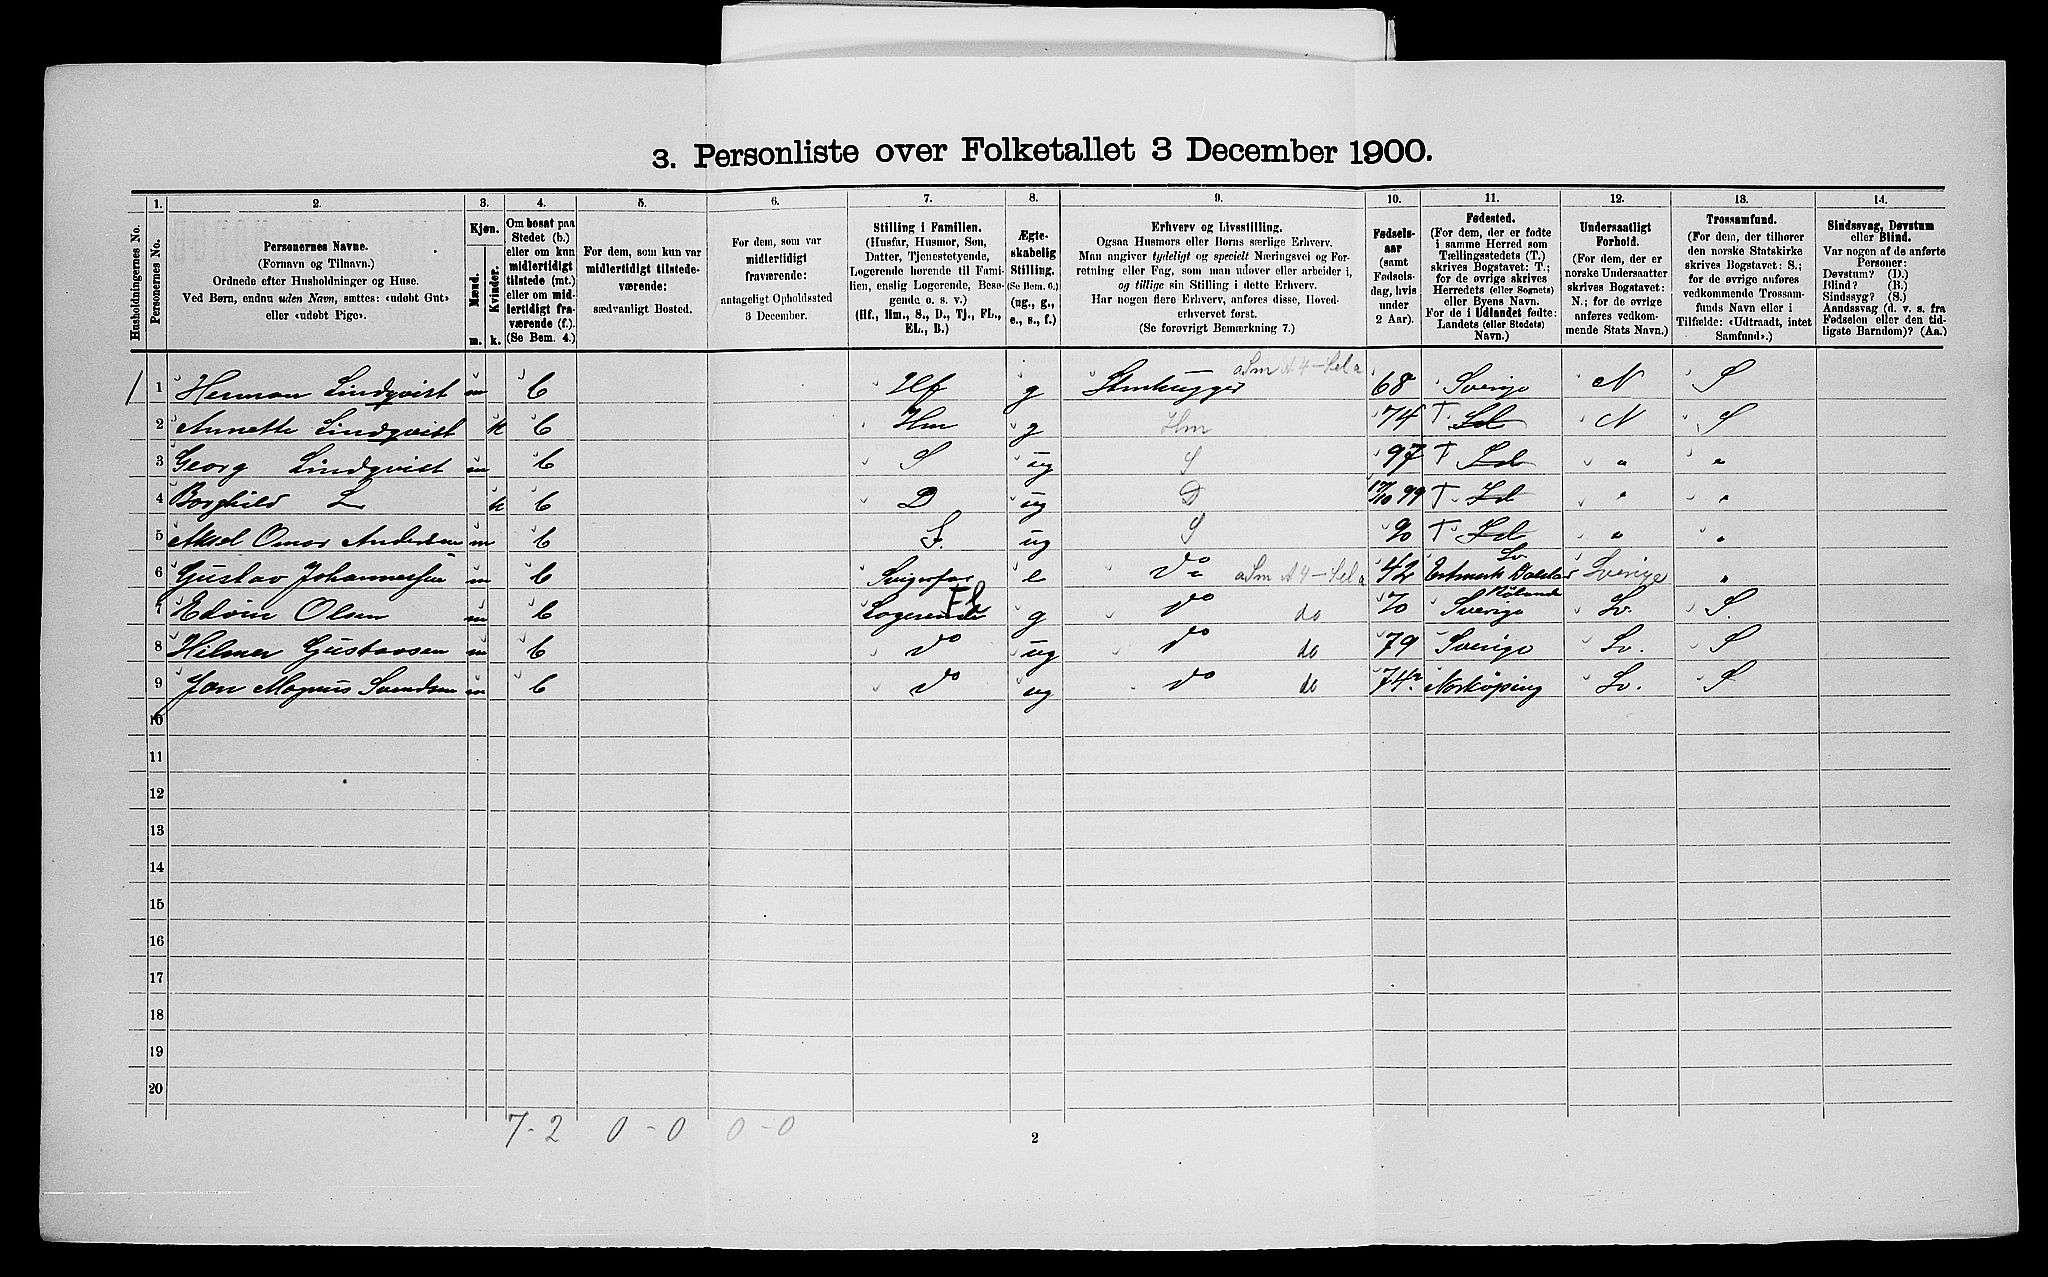 3. Personliste over Folketallet 3 December 1900.
1. 2. 3. 4. 5. 6. 7. 8. 9. 10. 11. 12. 13. 14.
Husholdningernes No.
Personernes No.
Personernes Navne.
(Fornavn og Tilnavn.)
Ordnede efter Husholdninger og Huse.
Ved Børn, endnu uden Navn, sættes: «udøbt Gut»
eller «udøbt Pige».
Kjøn.
Mænd.
Kvinder.
m. k.
Om bosat paa
Stedet (b.)
eller om kun
midlertidigt
tilstede (mt.)
eller om mid-
lertidigt fra-
værende (f.)
(Se Bem. 4.)
For dem, som kun var
midlertidigt tilstede-
værende:
sædvanligt Bosted.
For dem, som var
midlertidigt
fraværende:
antageligt Opholdssted
3 December.
Stilling i Familien.
(Husfar, Husmor, Søn,
Datter, Tjenestetyende,
Logerende hørende til Fami-
lien, enslig Logerende, Besø-
gende o. s. v.)
(Hf., Hm., S., D., Tj., FL.,
EL., B.)
Ægte-
skabelig
Stilling.
(Se Bem. 6.)
(ug., g.,
e., s., f.)
Erhverv og Livsstilling.
Ogsaa Husmors eller Børns særlige Erhverv.
Man angiver tydeligt og specielt Næringsvei og For-
retning eller Fag, som man udøver eller arbeider i,
og tillige sin Stilling i dette Erhverv.
Har nogen flere Erhverv, anføres disse, Hoved-
erhvervet først.
(Se forøvrigt Bemærkning 7.)
Fødsels-
aar
(samt
Fødsels-
dag, hvis
under
2 Aar).
Fødested.
(For dem, der er fødte
i samme Herred som
Tællingsstedets (T.)
skrives Bogstavet: T.;
for de øvrige skrives
Herredets (eller Sognets)
eller Byens Navn.
For de i Udlandet fødte:
Landets (eller Stedets)
Navn.)
Undersaatligt
Forhold.
(For dem, der er
norske Undersaatter
skrives Bogstavet:
N.; for de øvrige
anføres vedkom-
mende Stats Navn.)
Trossamfund.
(For dem, der tilhører
den norske Statskirke
skrives Bogstavet: S.;
for de øvrige anføres
vedkommende Trossam-
funds Navn eller i
Tilfælde: «Udtraadt, intet
Samfund».)
Sindssvag, Døvstum
eller Blind.
Var nogen af de anførte
Personer:
Døvstum? (D.)
Blind? (B.)
Sindssyg? (S.)
Aandssvag (d. v. s. fra
Fødselen eller den tid-
ligste Barndom)? (Aa.)
1 1 Herman Lindqvist m b Hf g Stenhugger 68 Sverige N S
2 Annette Lindqvist k b Hm g Hm 74 T. Id N S
3 Georg Lindqvist m b S ug S 97 T Id " "
4 Borghild L k b D ug D 17/10 99 T. Id " "
5 Aksel Omar Andersen m b S. ug S 90 T Id " "
6 Gustav Johannessen m b Svigerfar e do 42 Sv. Sverige "
7 Edvin Olsen m b Logerende FL g do do 70 Sverige Sv. S.
8 Hilmer Gustavsen m b do ug do do 79 Sverige Sv. S
9 Jon Magnus Svendsen m b do ug do do 74 Norköping Sv. S
10
11
12
13
14
15
16
17
18
19
20
7-2 0-0 0-0
2